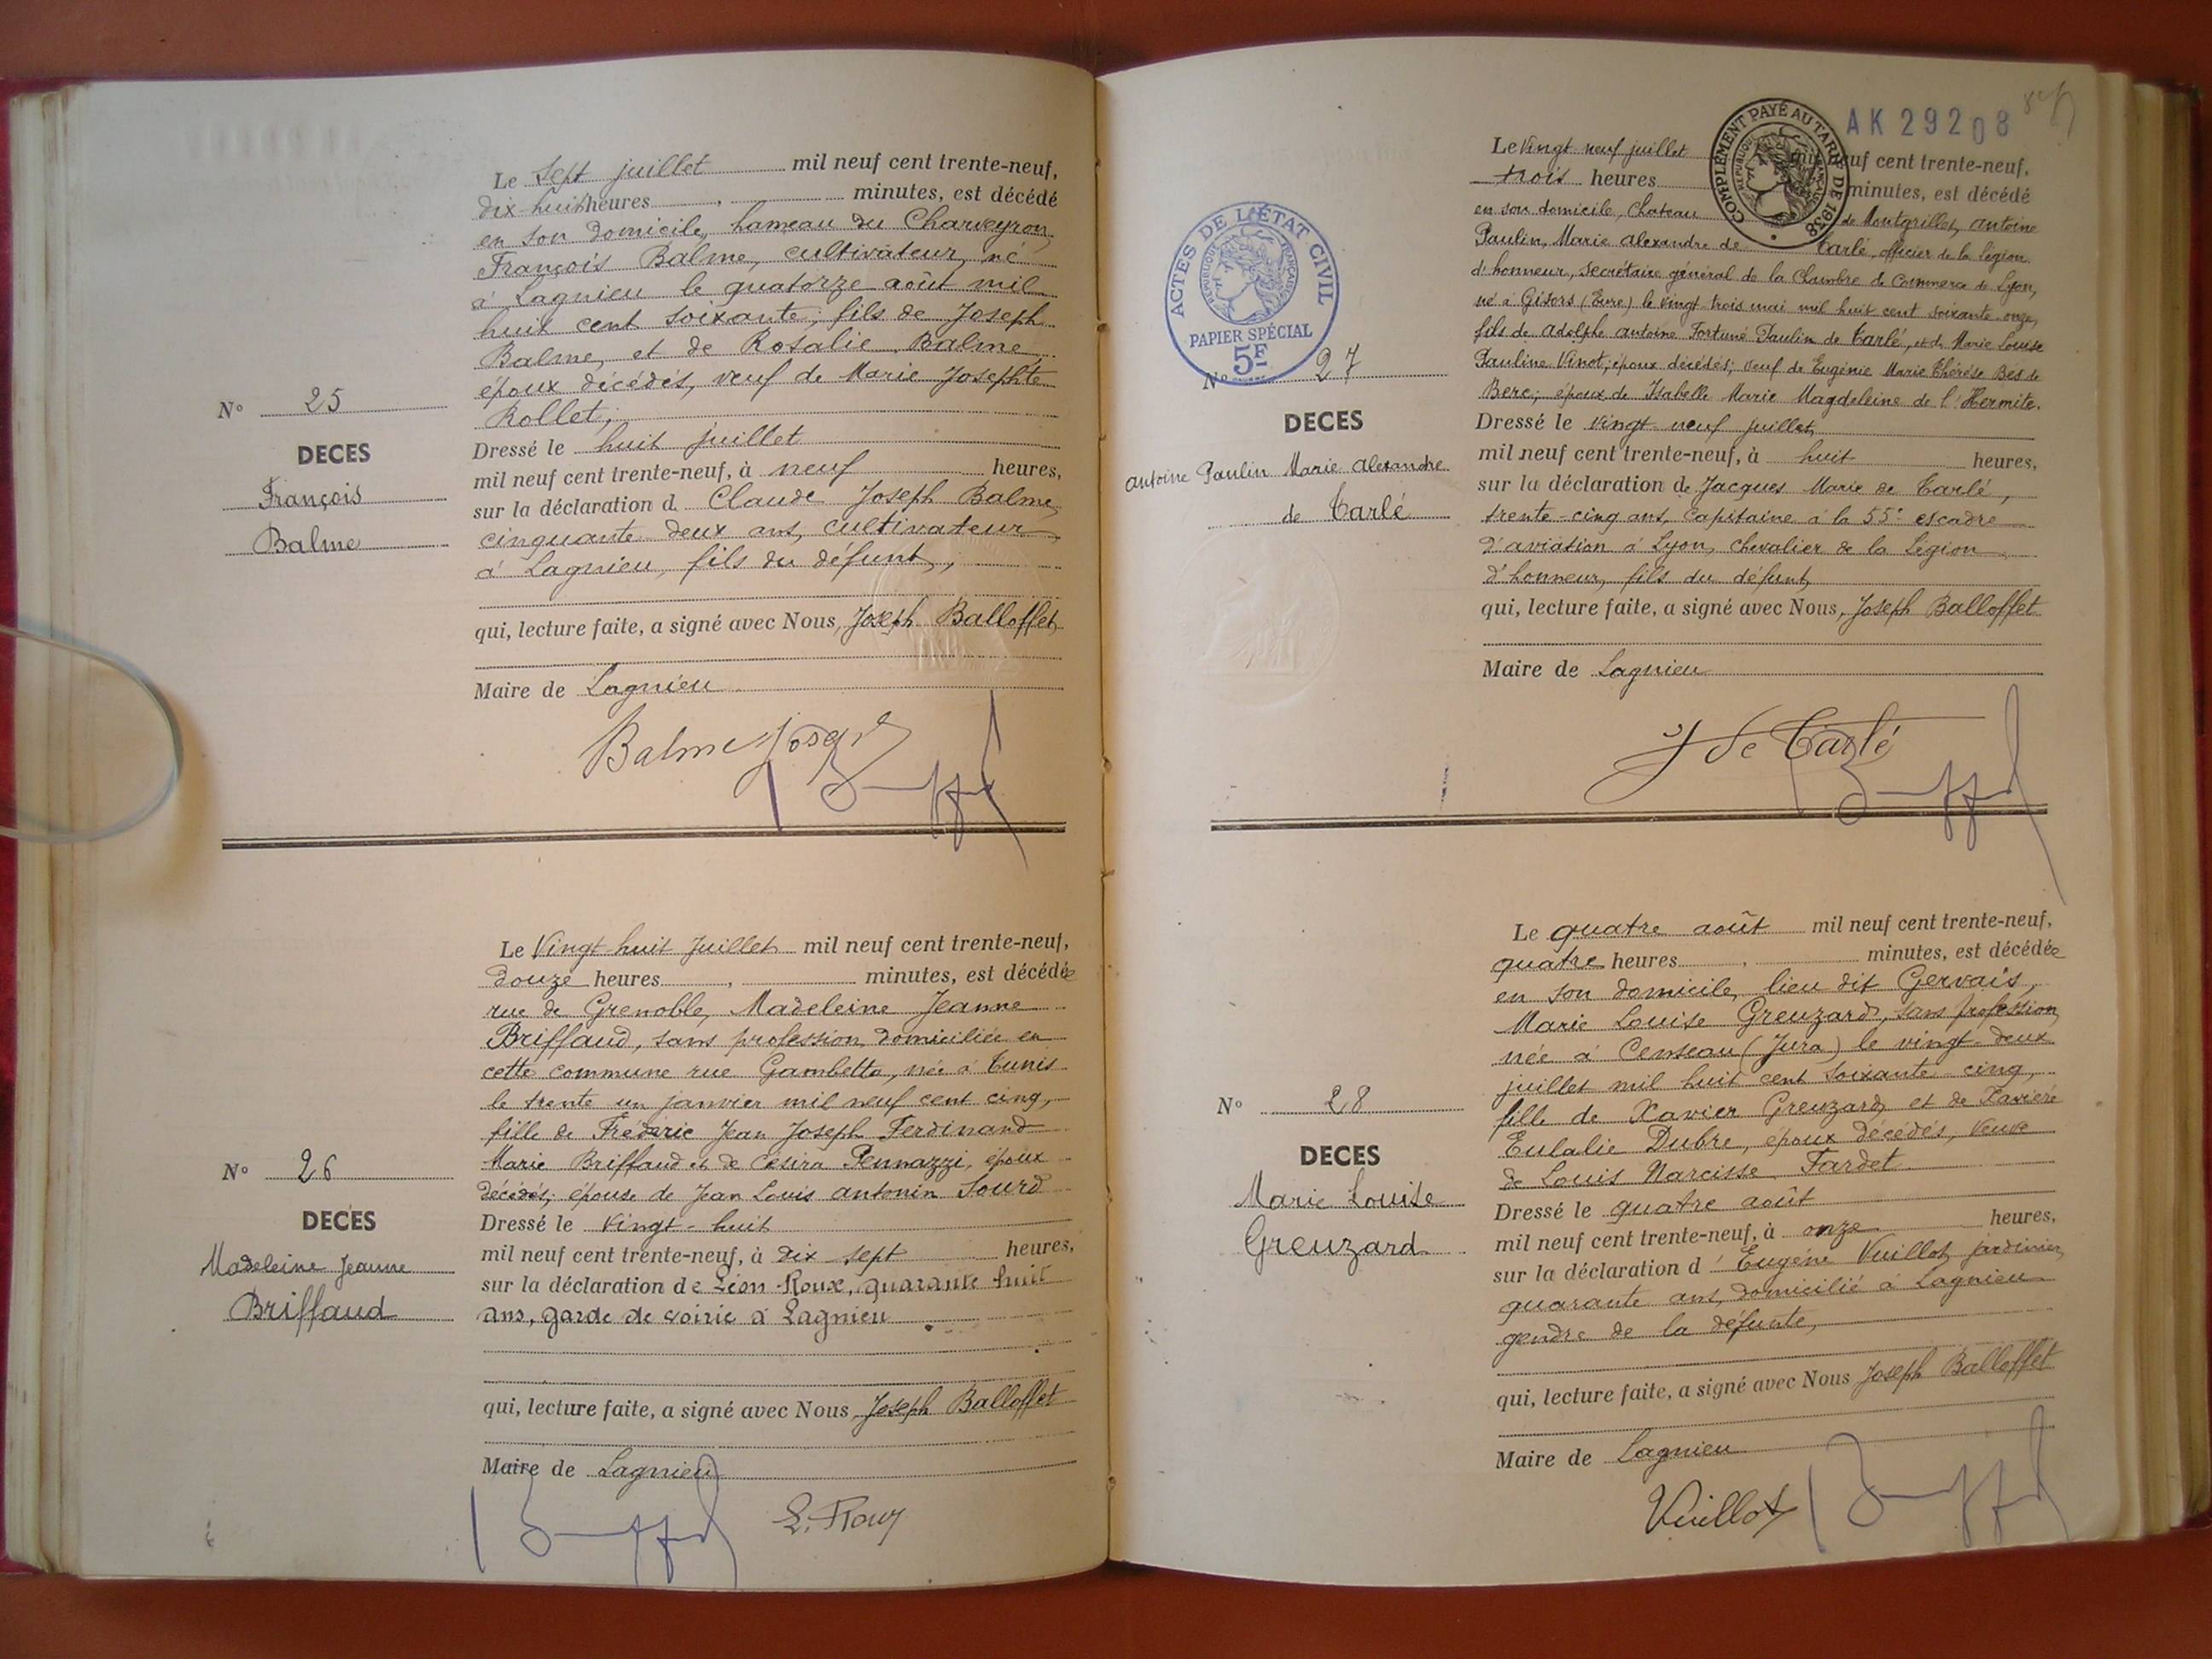 Le Sept juillet mil neuf cent trente-neuf,
dix-huit heures , minutes, est décédé
en son domicile, hameau du Charveyron,
François Balme, cultivateur, né
à Lagnieu le quatorze août mil
huit cent soixante, fils de Joseph
Balme, et de Rosalie Balme,
époux décédés, veuf de Marie Josephte
Rollet,
N° 25
DECES
François
Balme
Dressé le huit juillet
mil neuf cent trente-neuf, à neuf heures,
sur la déclaration d Claude Joseph Balme,
cinquante deux ans, cultivateur
à Lagnieu, fils du défunt,
qui, lecture faite, a signé avec Nous, Joseph Balloffet
Maire de Lagnieu
Balme Joseph
Le Vingt huit Juillet mil neuf cent trente-neuf,
douze heures , minutes, est décédée
rue de Grenoble, Madeleine Jeanne
Briffaud, sans profession, domiciliée en
cette commune rue Gambetta, née à Tunis
le trente un janvier mil neuf cent cinq,
fille de Fréderic Jean Joseph Ferdinand
Marie Briffaud et de Césira Pennazzi, époux
décédés; épouse de Jean Louis antonin Sourd
N° 26
DECES
Madeleine Jeanne
Briffaud
Dressé le vingt-huit
mil neuf cent trente-neuf, à dix sept heures,
sur la déclaration de Léon Roux, quarante huit
ans, garde de voirie à Lagnieu
qui, lecture faite, a signé avec Nous, Joseph Balloffet
Maire de Lagnieu
L. Roux
AK 29208
COMPLÉMENT PAYÉ AU TARIF DE 1938
RÉPUBLIQUE FRANÇAISE
Le Vingt neuf juillet mil neuf cent trente-neuf,
trois heures minutes, est décédé
en son domicile, Chateau de Montgrillet, antoine
Paulin, Marie alexandre de Tarlé, officier de la légion
d'honneur, secrétaire général de la Chambre de Commerce de Lyon,
né à Gisors (Eure) le vingt trois mai mil huit cent soixante onze,
fils de adolphe antoine Fortuné Paulin de Tarlé, et de Marie Louise
Pauline Vinot, époux décédés; veuf de Eugénie Marie Thérèse Bes de
Berc; époux de Isabelle Marie Magdeleine de l'Hermite.
ACTES DE L'ÉTAT CIVIL
RÉPUBLIQUE FRANÇAISE
PAPIER SPÉCIAL
5F
N° 27
DECES
antoine Paulin Marie alexandre
de Tarlé
Dressé le vingt neuf juillet
mil neuf cent trente-neuf, à huit heures,
sur la déclaration de Jacques Marie de Tarlé,
trente-cinq ans, Capitaine à la 55e escadre
d'aviation à Lyon, chevalier de la Légion
d'honneur, fils du défunt,
qui, lecture faite, a signé avec Nous, Joseph Balloffet
Maire de Lagnieu
J de Tarlé
Le quatre août mil neuf cent trente-neuf,
quatre heures , minutes, est décédée
en son domicile, lieu dit Gervais,
Marie Louise Greuzard, sans profession,
née à Censeau (Jura) le vingt-deux
juillet mil huit cent soixante-cinq,
fille de Xavier Greuzard, et de Xavière
Eulalie Dubre, époux décédés, veuve
de Louis Narcisse Fardet
N° 28
DECES
Marie Louise
Greuzard
Dressé le quatre août
mil neuf cent trente-neuf, à onze heures,
sur la déclaration d'Eugène Vuillot, jardinier,
quarante ans, domicilié à Lagnieu
gendre de la défunte,
qui, lecture faite, a signé avec Nous Joseph Balloffet
Maire de Lagnieu
Vuillot